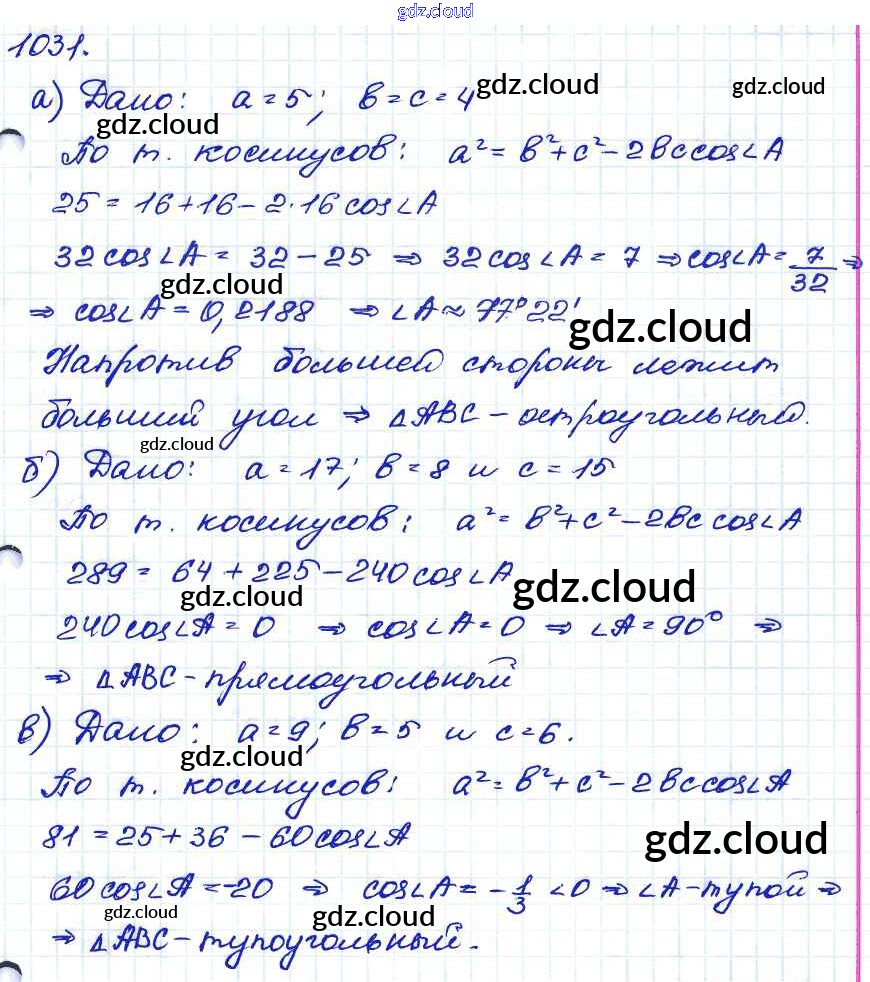 gdz.cloud
1031.
а) Дано: a = 5; b = c = 4 gdz.cloud gdz.cloud
gdz.cloud
По т. косинусов: a² = b² + c² - 2bc cos∠A
25 = 16 + 16 - 2·16 cos∠A
32 cos∠A = 32 - 25 ⇒ 32 cos∠A = 7 ⇒ cos∠A = 7/32 ⇒
gdz.cloud
⇒ cos∠A = 0,2188 ⇒ ∠A ≈ 77°22'
gdz.cloud
Напротив большей стороны лежит
больший угол ⇒ △ABC - остроугольный.
gdz.cloud
б) Дано: a = 17; b = 8 и c = 15
По т. косинусов: a² = b² + c² - 2bc cos∠A
289 = 64 + 225 - 240 cos∠A
gdz.cloud gdz.cloud
240 cos∠A = 0 ⇒ cos∠A = 0 ⇒ ∠A = 90° ⇒
⇒ △ABC - прямоугольный
в) Дано: a = 9; b = 5 и c = 6.
gdz.cloud
По т. косинусов: a² = b² + c² - 2bc cos∠A
81 = 25 + 36 - 60 cos∠A
gdz.cloud
60 cos∠A = -20 ⇒ cos∠A = - 1/3 < 0 ⇒ ∠A - тупой ⇒
gdz.cloud gdz.cloud
⇒ △ABC - тупоугольный.